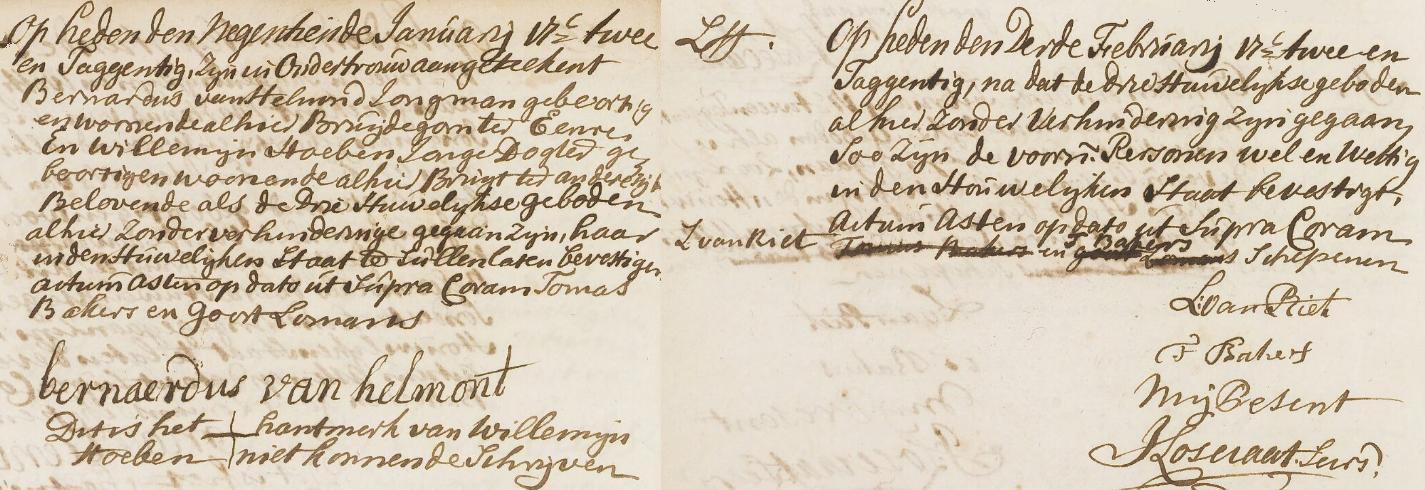 Op heden den Negenthiende Januarij 17c twee
en Taggentig, Zijn in Ondertrouw aangeteekent
Bernardus van Helmond Jongman geboortig
en woonende alhier Bruijdegom ter Eenre
En Willemijn Hoeben Jonge Dogter ge
boortig en woonende alhier Bruijt ter andere zijde
Belovende als de drie Huwelijkse geboden
alhier Zonder verhinderinge gegaan Zijn, haar
in den Huwelijken Staat te Sullen laten bevestigen
actum Asten op dato ut Supra Coram Tomas
Bakers en Goort Lomans
bernaerdus van helmont
Dit is het hantmerk van Willemijn
Hoeben niet konnende Schrijven
Lff.
Op heden den Derde Februarij 17c twee en
Taggentig, na dat de drie Huwelijkse geboden
alhier Zonder Verhindering Zijn gegaan,
Soo Zijn de voorn: Personen wel en Wettig
in den Houwelijken Staat bevestigt,
Actum Asten op dato ut Supra Coram
L van Riet Tomas Bakers en T Bakers Goort Lomans Schepenen
L van Riet
T Bakers
Mij Present
J Losecaat Secrs.